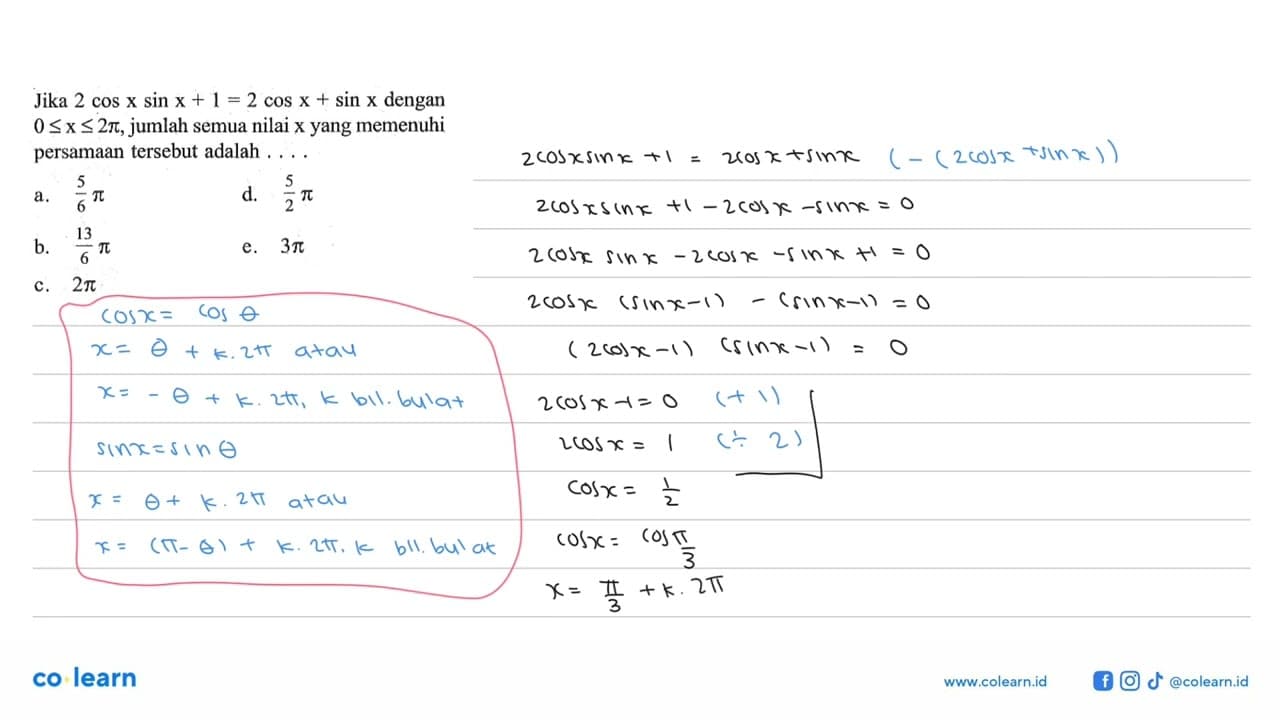 Jika 2 cos x sin x + 1 = 2 cos x + sin x dengan
0 ≤ x ≤ 2π, jumlah semua nilai x yang memenuhi
persamaan tersebut adalah . . . .
a. 5/6 π d. 5/2 π
b. 13/6 π e. 3π
c. 2π
cos x = cos θ
x = θ + k. 2π atau
x = - θ + k. 2π, k bil. bulat
sin x = sin θ
x = θ + k. 2π atau
x = (π - θ) + k. 2π, k bil. bulat
2cos x sin x + 1 = 2cos x + sin x (-(2cos x + sin x))
2cos x sin x + 1 - 2cos x - sin x = 0
2cos x sin x - 2cos x - sin x + 1 = 0
2cos x (sin x - 1) - (sin x - 1) = 0
(2cos x - 1) (sin x - 1) = 0
2cos x - 1 = 0 (+ 1)
2cos x = 1 (÷ 2)
cos x = 1/2
cos x = cos π/3
x = π/3 + k. 2π
co learn
www.colearn.id
@colearn.id